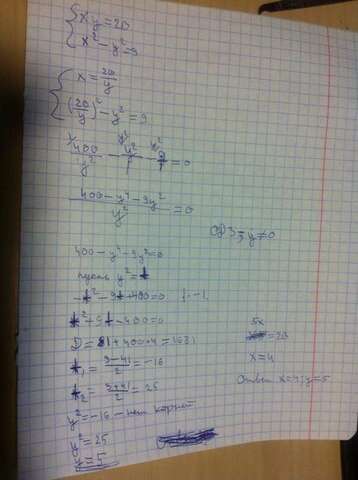 xy=20
x²-y²=9
x=20/y
(20/y)²-y²=9
400/y² - y²/1 - 9/1 =0
(400-y⁴-9y²)/y² =0
ОДЗ y≠0
400-y⁴-9y²=0
пусть y²=t
-t²-9t+400=0 |·-1
t²+9t-400=0
D=81+400·4=1681
t₁=(9-41)/2=-16
t₂=(9+41)/2=25
y²=-16 - нет корней
y²=25
y=5
5x
=20
x=4
Ответ x=4; y=5